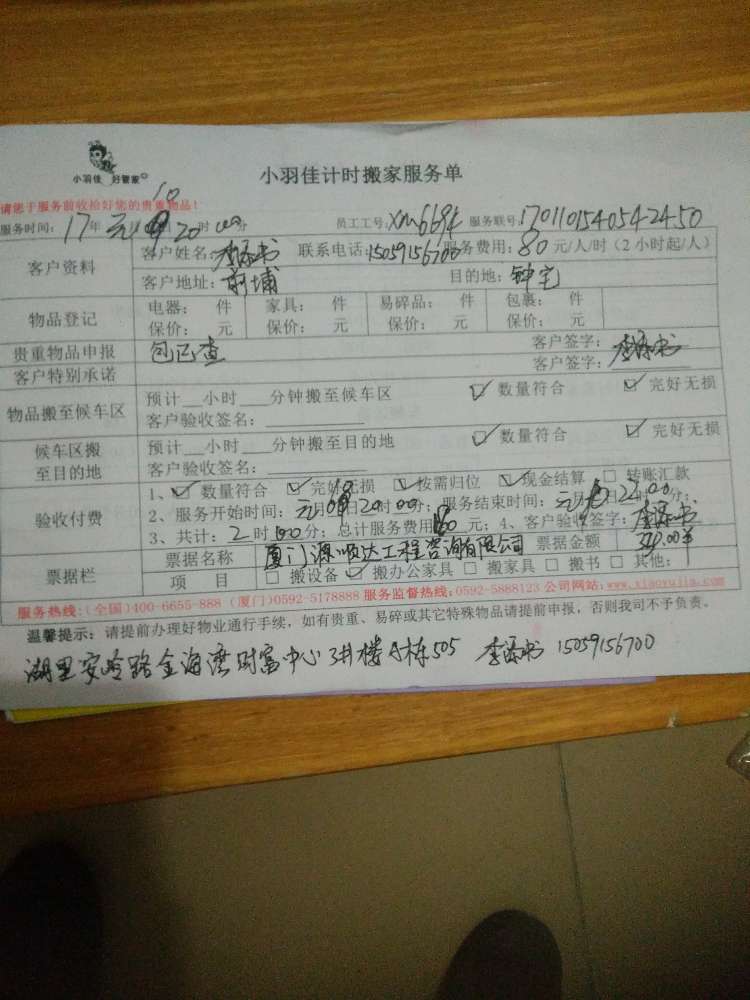 小羽佳 好管家
小羽佳计时搬家服务单
请您于服务前收拾好您的贵重物品!
服务时间:17年元月10日20时00分 员工工号:XM6694 服务联号:1701101540542450
客户资料 客户姓名:李添书 联系电话:15059156700 服务费用:80元/人/时(2小时起/人)
客户地址:前埔 目的地:钟宅
物品登记 电器: 件 家具: 件 易碎品: 件 包裹: 件
保价: 元 保价: 元 保价: 元 保价: 元
贵重物品申报 包已查 客户签字:
客户特别承诺 客户签字:李添书
物品搬至候车区 预计__小时___分钟搬至候车区 ☑数量符合 ☑完好无损
客户验收签名:
候车区搬至目的地 预计__小时___分钟搬至目的地 ☑数量符合 ☑完好无损
客户验收签名:
验收付费 1、☑数量符合 ☑完好无损 ☑按需归位 ☑现金结算 □转账汇款
2、服务开始时间:元月10日20时00分;服务结束时间:元月 日22:00分;
3、共计:2时00分;总计服务费用 元;4、客户验收签字:李添书
票据栏 票据名称 厦门源顺达工程咨询有限公司 票据金额
项目 □搬设备 ☑搬办公家具 □搬家具 □搬书 □其他:
服务热线:(全国)400-6655-888 (厦门)0592-5178888 服务监督热线:0592-5888123 公司网站:www.xiaoyujia.com
温馨提示:请提前办理好物业通行手续,如有贵重、易碎或其它特殊物品请提前申报,否则我司不予负责。
湖里安岭路金海湾财富中心3井楼A栋505 李添书 15059156700